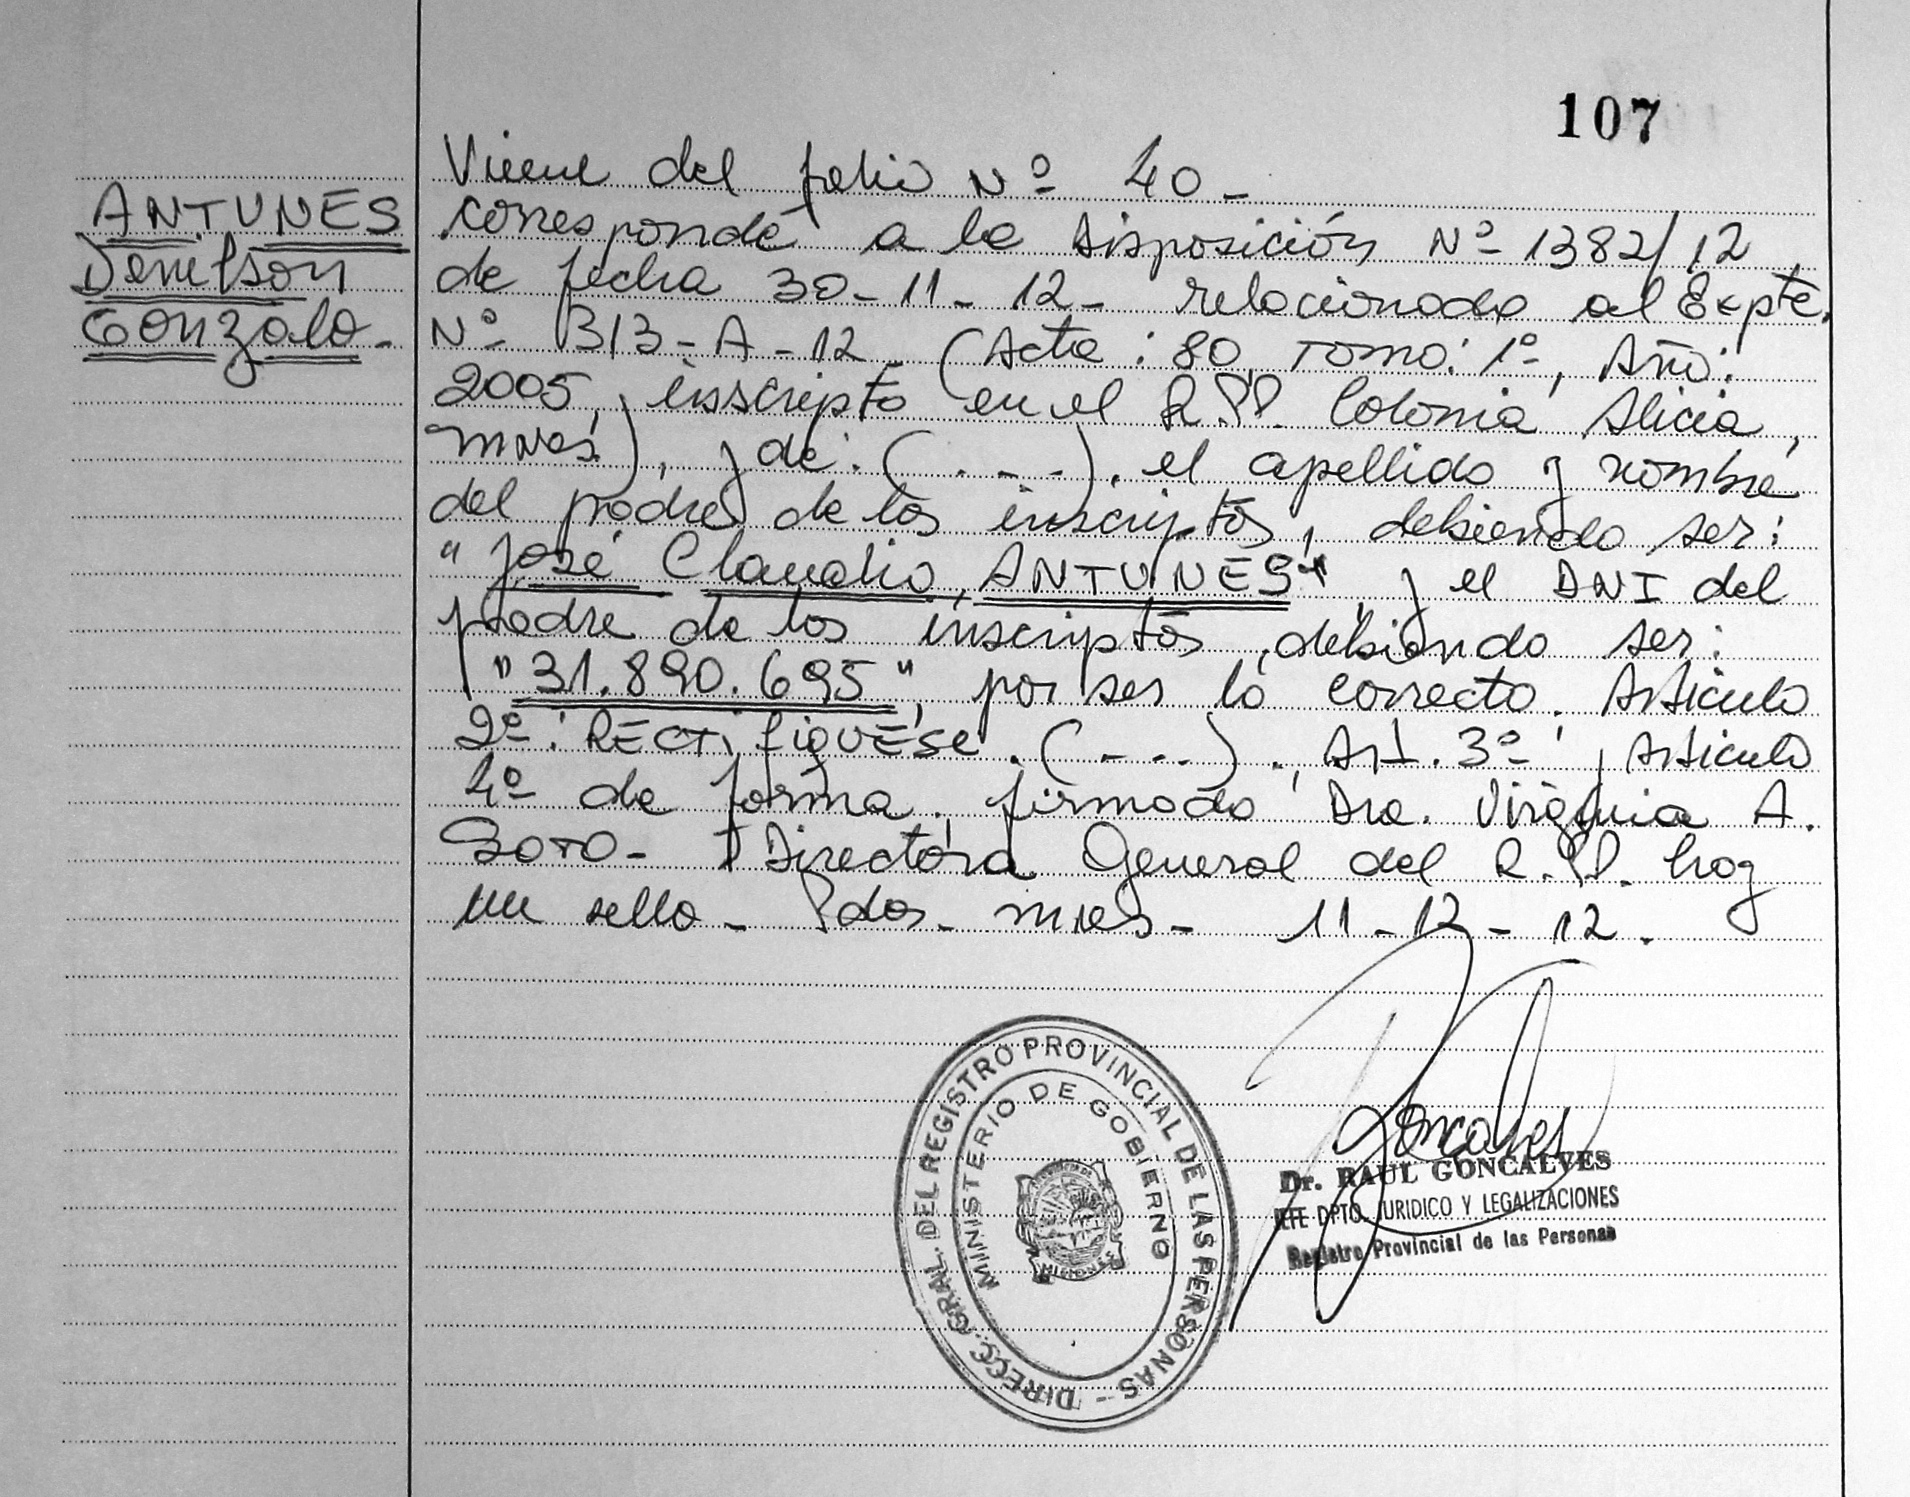 107
ANTUNES
Denilson
Gonzalo.
Viene del folio Nº 40 -
corresponde a la Disposición Nº 1382/12
de fecha 30-11-12- relacionado al Expte.
Nº 1313-A-12. (Acta: 80, Tomo: 1º, Año:
2005, inscripto en el R.P.P. Colonia Alicia,
Mnes.), y de: (....). el apellido y nombre
del padre de los inscriptos, debiendo ser:
"José Claudio, ANTUNES", y el DNI del
padre de los inscriptos, debiendo ser:
"31.890.695", por ser lo correcto. Artículo
2º: RECTIFIQUESE. (- - . .)., Art. 3º, Artículo
4º de forma. firmado Dra. Virginia A.
SOTO- Directora General del R.P.P. hoy
un sello - Pdas. Mnes - 11-12-12.
DIRECC. GRAL. DEL REGISTRO PROVINCIAL DE LAS PERSONAS -
MINISTERIO DE GOBIERNO
MISIONES
Goncalves
Dr. RAUL GONCALVES
JEFE DPTO. JURIDICO Y LEGALIZACIONES
Registro Provincial de las Personas